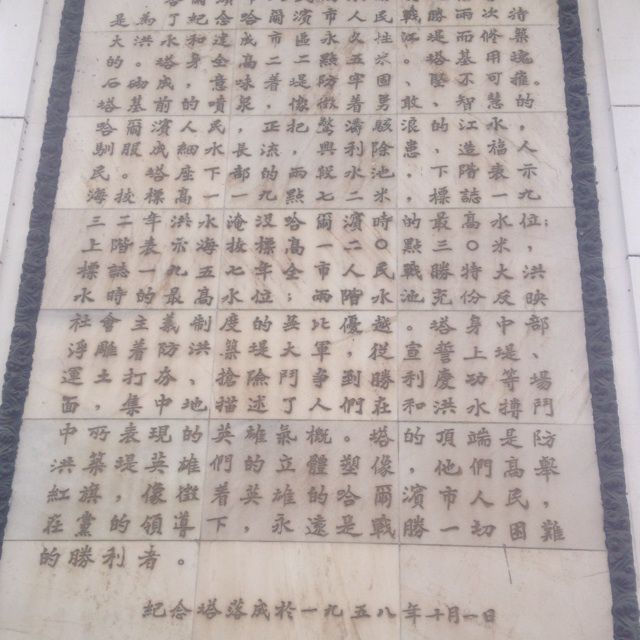 是為了紀念哈爾濱市人民戰勝兩次特
大洪水和建成市區永久性江堤而修築
的。塔身全高二二點五米。塔基用塊
石砌成,意味着堤防牢固,堅不可摧。
塔基前的噴泉,像徵着勇敢、智慧的
哈爾濱人民,正把驚濤駭浪的江水,
馴服成細水長流,興利除患,造福人
民。塔座下部的兩級水池,下階表示
海拔標高一一九點七二米,標誌一九
三二年洪水淹沒哈爾濱時的最高水位;
上階表示海拔標高一二〇點三〇米,
標誌一九五七年全市人民戰勝特大洪
水時的最高水位;兩階水池充份反映
社會主義制度的無比優越。塔身中部、
浮雕着防洪築堤大軍,從宣誓上堤、
運土打夯、搶險鬥爭到勝利慶功等場
面,集中地描述了人們在和洪水搏鬥
中所表現的英雄氣概。塔的頂端是防
洪築堤英雄們的立體塑像,他們高舉
紅旗,像徵着英雄的哈爾濱市人民,
在黨的領導下,永遠是戰勝一切困難
的勝利者。
紀念塔落成於一九五八年十月一日